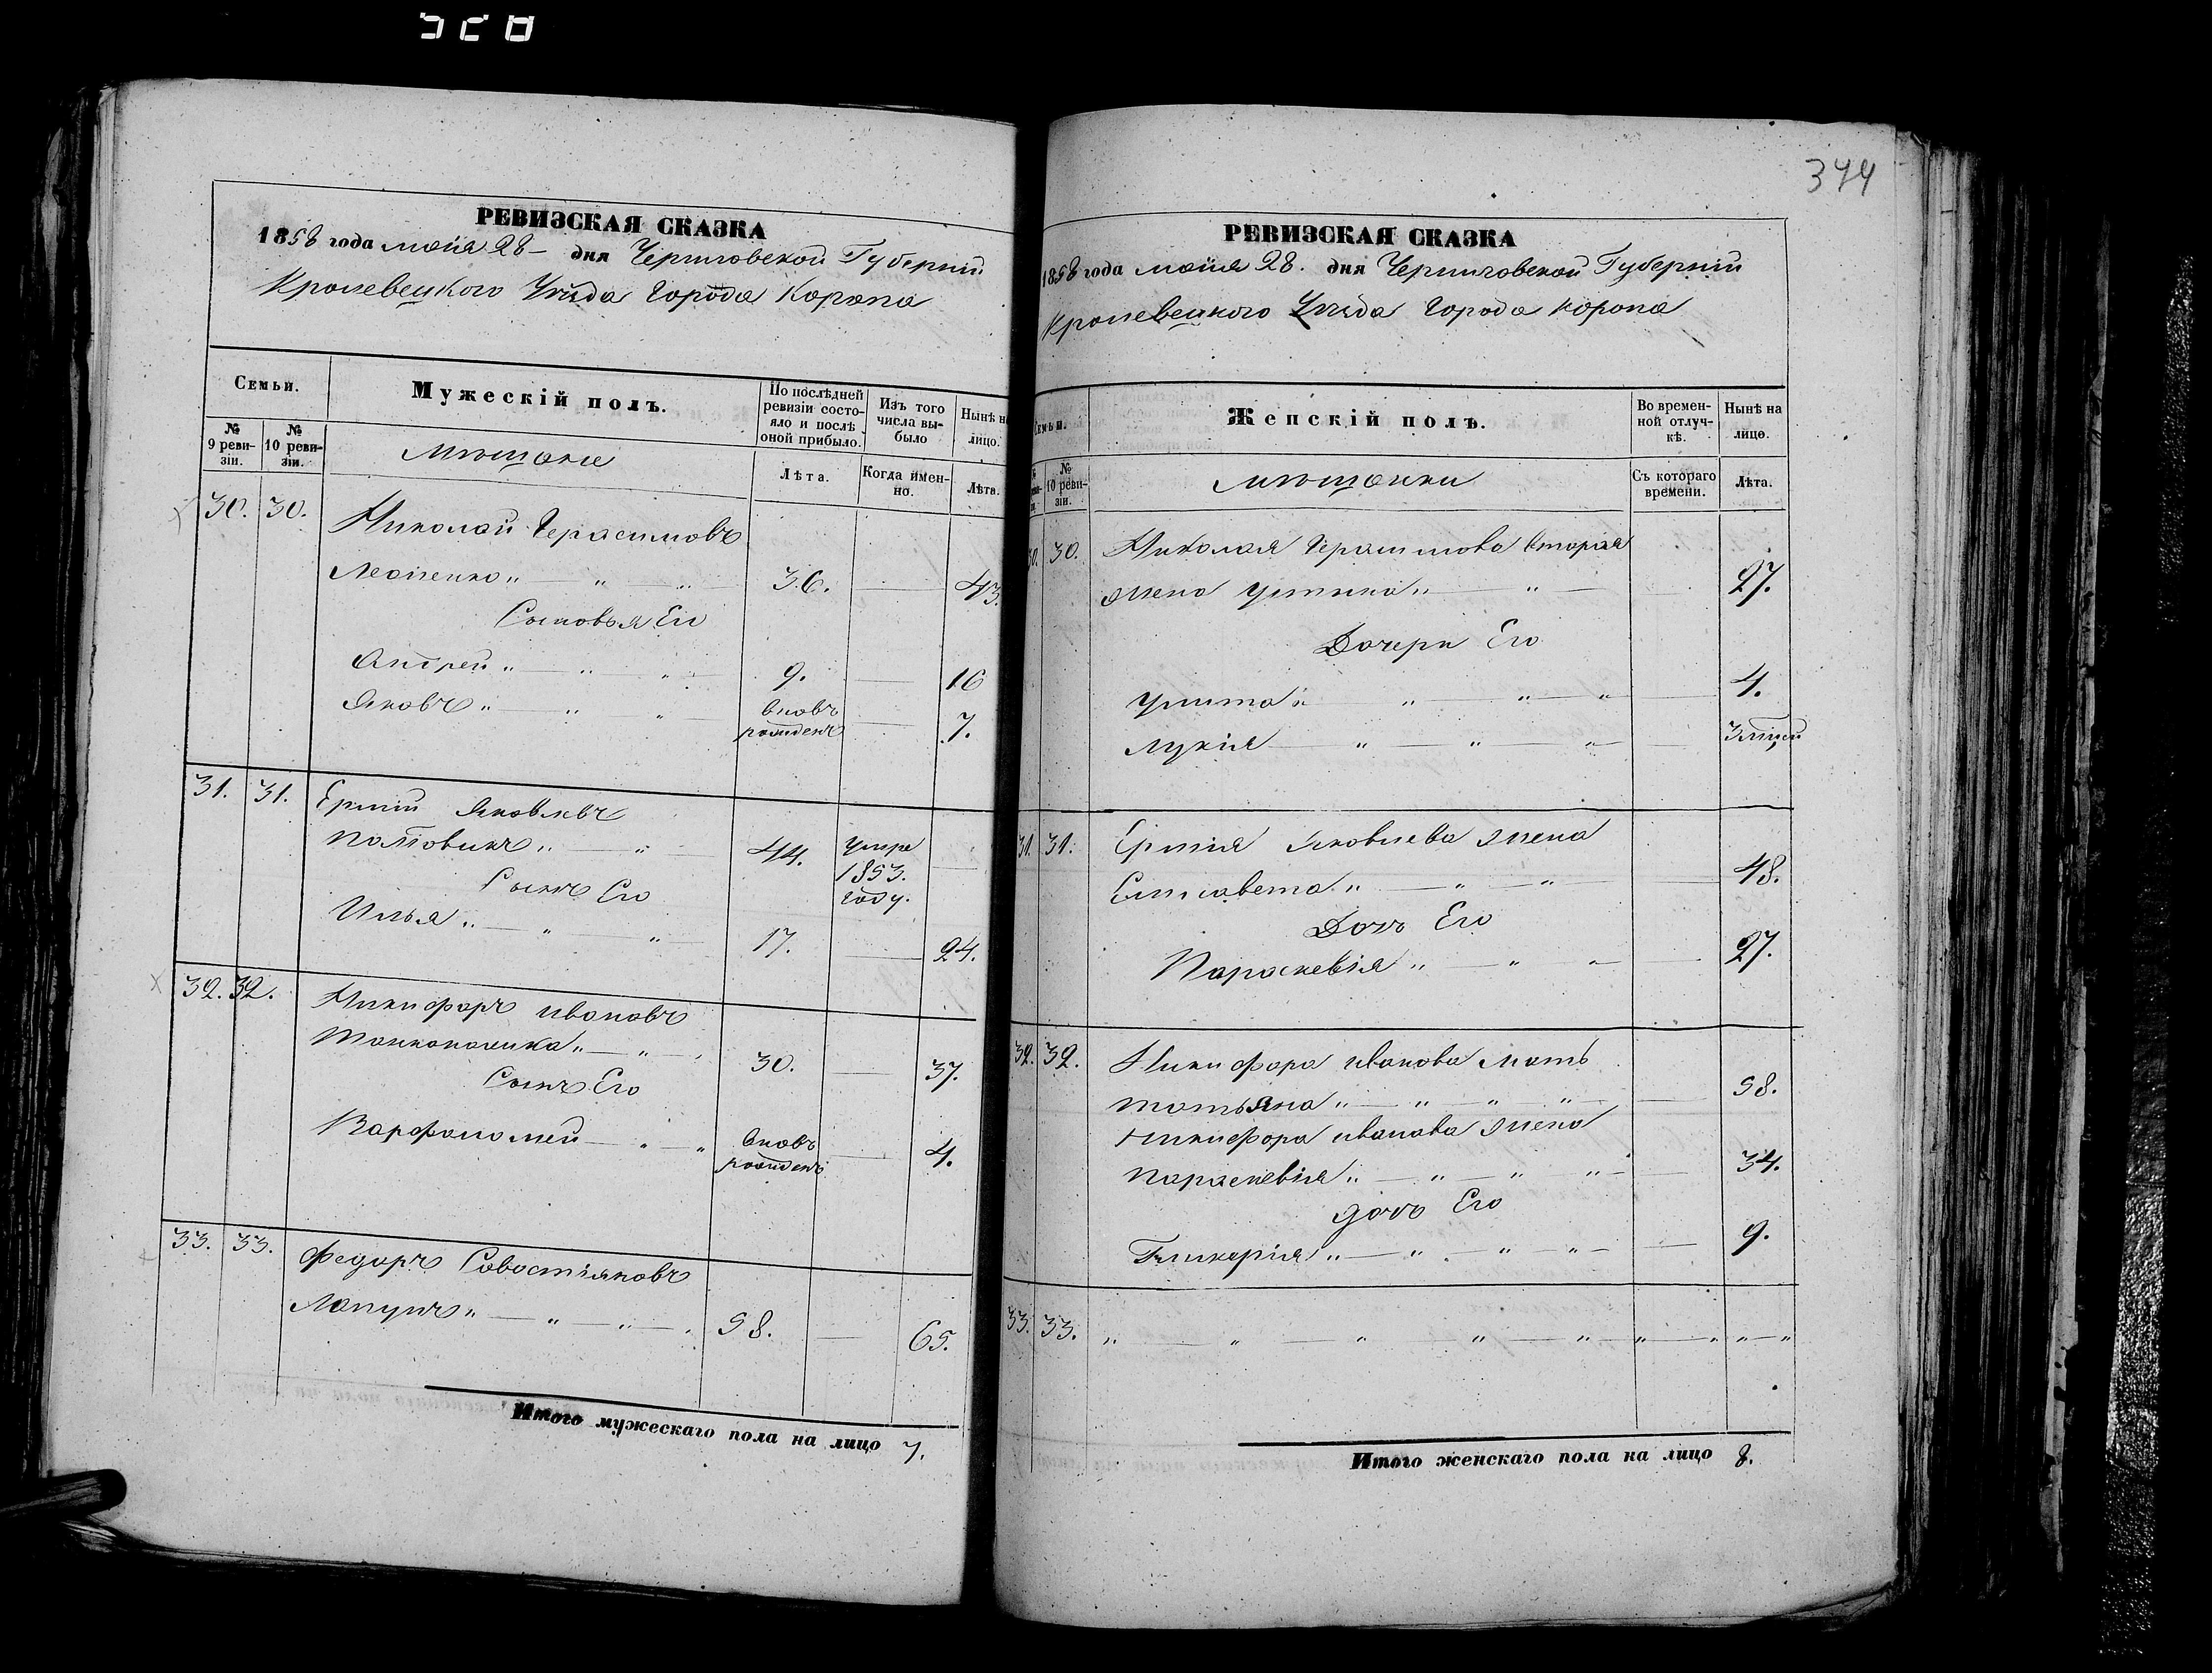 РЕВИЗСКАЯ СКАЗКА
1858 года маія 28 дня Черниговской Губерніи
Кролевецкого Уезда Города Коропа
Семьи.
Мужескій полъ.
По послѣдней ревизіи состояло и послѣ оной прибыло.
Изъ того числа выбыло
Нынѣ на лицо.
№ 9 ревизіи.
№ 10 ревизіи.
Мещане
Лѣта.
Когда именно.
Лѣта.
30. 30. Николай Герасимовъ
36. 43.
Сыновья Его
Андрей 9. 16
Яковъ вновь рожденъ 7.
31. 31. Ермий Яковлевъ
44. умре 1853. году.
Сынъ Его
Илья 17. 24.
32. 32. Никифоръ Ивановъ
30. 37.
Сынъ Его
Варфоломей вновь рожденъ 4.
33. 33. Федоръ Савостіяновъ
Лапунъ 58. 65.
Итого мужескаго пола на лицо 7.
344
РЕВИЗСКАЯ СКАЗКА
1858 года маія 28. дня Черниговской Губерніи
Кролевецкого Уезда Города Коропа
Семьи.
Женскій полъ.
Во временной отлучкѣ.
Нынѣ на лицо.
№ 10 ревизіи.
мещанки
Съ котораго времени.
Лѣта.
30. 30. Николая Герасимова вторая
жена Устина 27.
Дочери Его
4.
Лукія
31. 31. Ермия Яковлева жена
Елисавета 48.
Дочь Его
Параскевія 27.
32. 32. Никифора Иванова мать
Татьяна 58.
Никифора Иванова жена
Параскевія 34.
Дочь Его
Гликерія 9.
33. 33.
Итого женскаго пола на лицо 8.